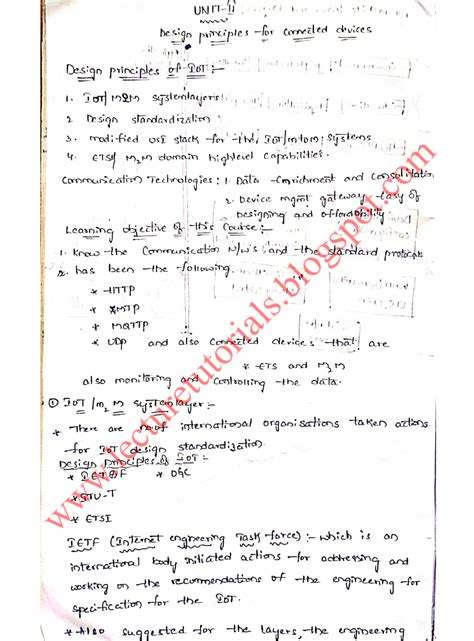 UNIT-II
Design principles for connected devices
Design principles of IoT :-
1. IoT/M2M system layers
2. Design standardization
3. modified OSI stack for the IoT/mtom, systems
4. ETSI M2M domain highlevel capabilities.
Communication Technologies : 1. Data Enrichment and consolidation
2. Device mgmt gateway Easy of
designing and affordability
Learning objective of this Course:-
1. Know the Communication N/w's and the standard protocols
2. has been the following.
* HTTP
* XMTP
* MQTTP
* UDP and also connected device's that are
* ETS and M2M
also monitoring and controlling the data.
① IoT/M2M system layer :-
* There are no.of international organisations taken actions
for IoT design standardization.
Design principles of IoT :-
* IETF * OGC
* STU-T
* ETSI
IETF (Internet engneering Task force) :- which is an
international body initiated actions for addressing and
working on the recommendations of the engineering for
specification for the IoT.
* Also suggested for the layers, the engineering
www.lecturetutorials.blogspot.com